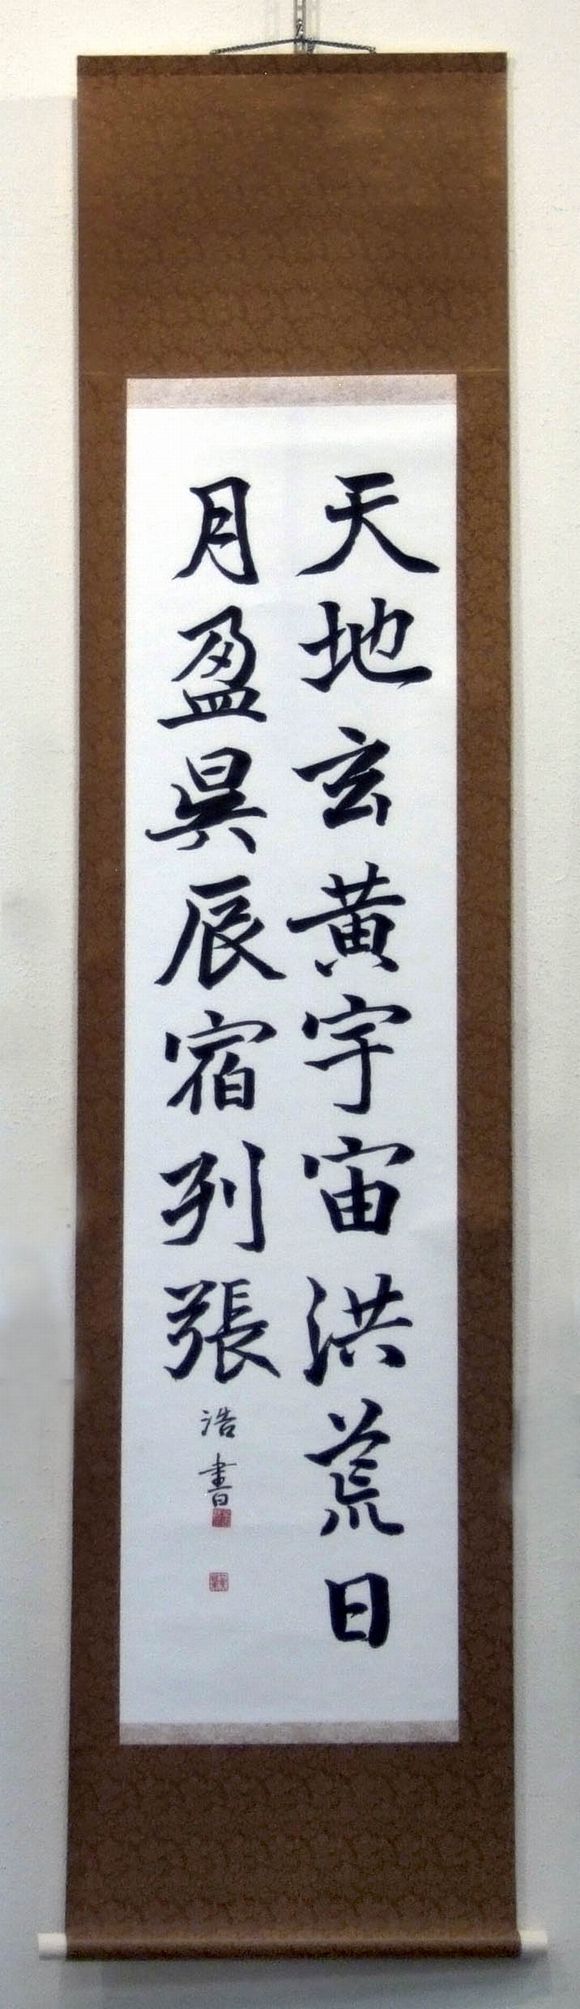 天地玄黄宇宙洪荒日
月盈昃辰宿列張
浩書